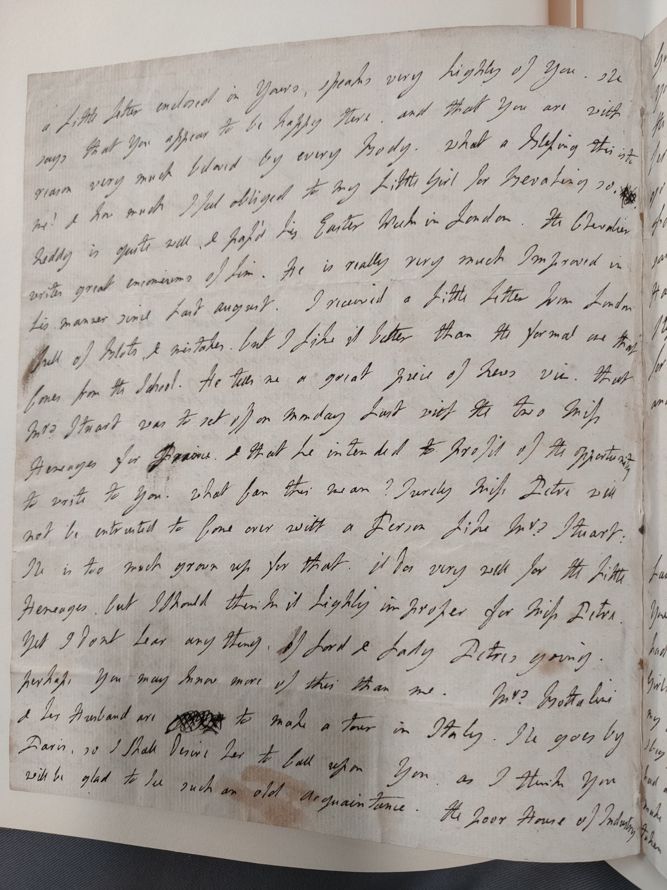 a Little Letter enclosed in yours, speaks very highly of you. she
says that you appear to be happy there. and that you are with
reason very much beloved by every Body. what a Blessing this is to
me! & how much I feel obliged to my Little Girl for Behaving so.
Neddy is quite well & pass'd his Easter Week in London. the Chevalier
writes great encomiums of him. He is really very much Improved in
his manner since Last august. I received a Little Letter from London
full of Blots, & mistakes. but I Like it better than the formal one that
Comes from the School. He tells me a great piece of News viz. that
Mrs. Stuart was to set off on Monday Last with the two Miss
Heneages for France. & that he intended to profit of the opportunity
to write to you. what Can this mean? Surely Miss Petre will
not be entrusted to Come over with a Person Like Mrs. Stuart.
she is too much grown up for that. it does very well for the Little
Heneages. but I should think it highly improper for Miss Petre.
yet I Dont hear any thing, of Lord & Lady Petres going.
perhaps you may know more of this than me. Mrs. Bottalini
& her Husband are to make a tour in Italy. she goes by
Paris, so I shall Desire her to Call upon you. as I think you
will be glad to see such an old acquaintance. the poor House of Industry